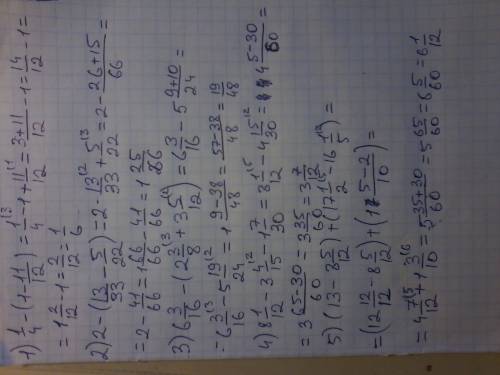 1) 1/4 - (1 - 11/12) = 1/4 - 1 + 11/12 = (3+11)/12 - 1 = 14/12 - 1 =
= 1 2/12 - 1 = 2/12 = 1/6
2) 2 - (13/33 - 5/22) = 2 - 13/33 + 5/22 = 2 - (26+15)/66 =
= 2 - 41/66 = 1 66/66 - 41/66 = 1 25/66
3) 6 3/16 - (2 3/8 + 3 5/12) = 6 3/16 - 5 (9+10)/24 =
= 6 3/16 - 5 19/24 = 1 (9-38)/48 = (57-38)/48 = 19/48
4) 8 1/12 - 3 4/15 - 1 7/30 = 8 1/12 - 4 15/30 = 4 (5-30)/60 =
= 3 (65-30)/60 = 3 35/60 = 3 7/12
5) (13 - 8 5/12) + (17 1/2 - 16 1/5) =
= (12 12/12 - 8 5/12) + (1 (5-2)/10) =
= 4 7/12 + 1 3/10 = 5 (35+30)/60 = 5 65/60 = 6 5/60 = 6 1/12